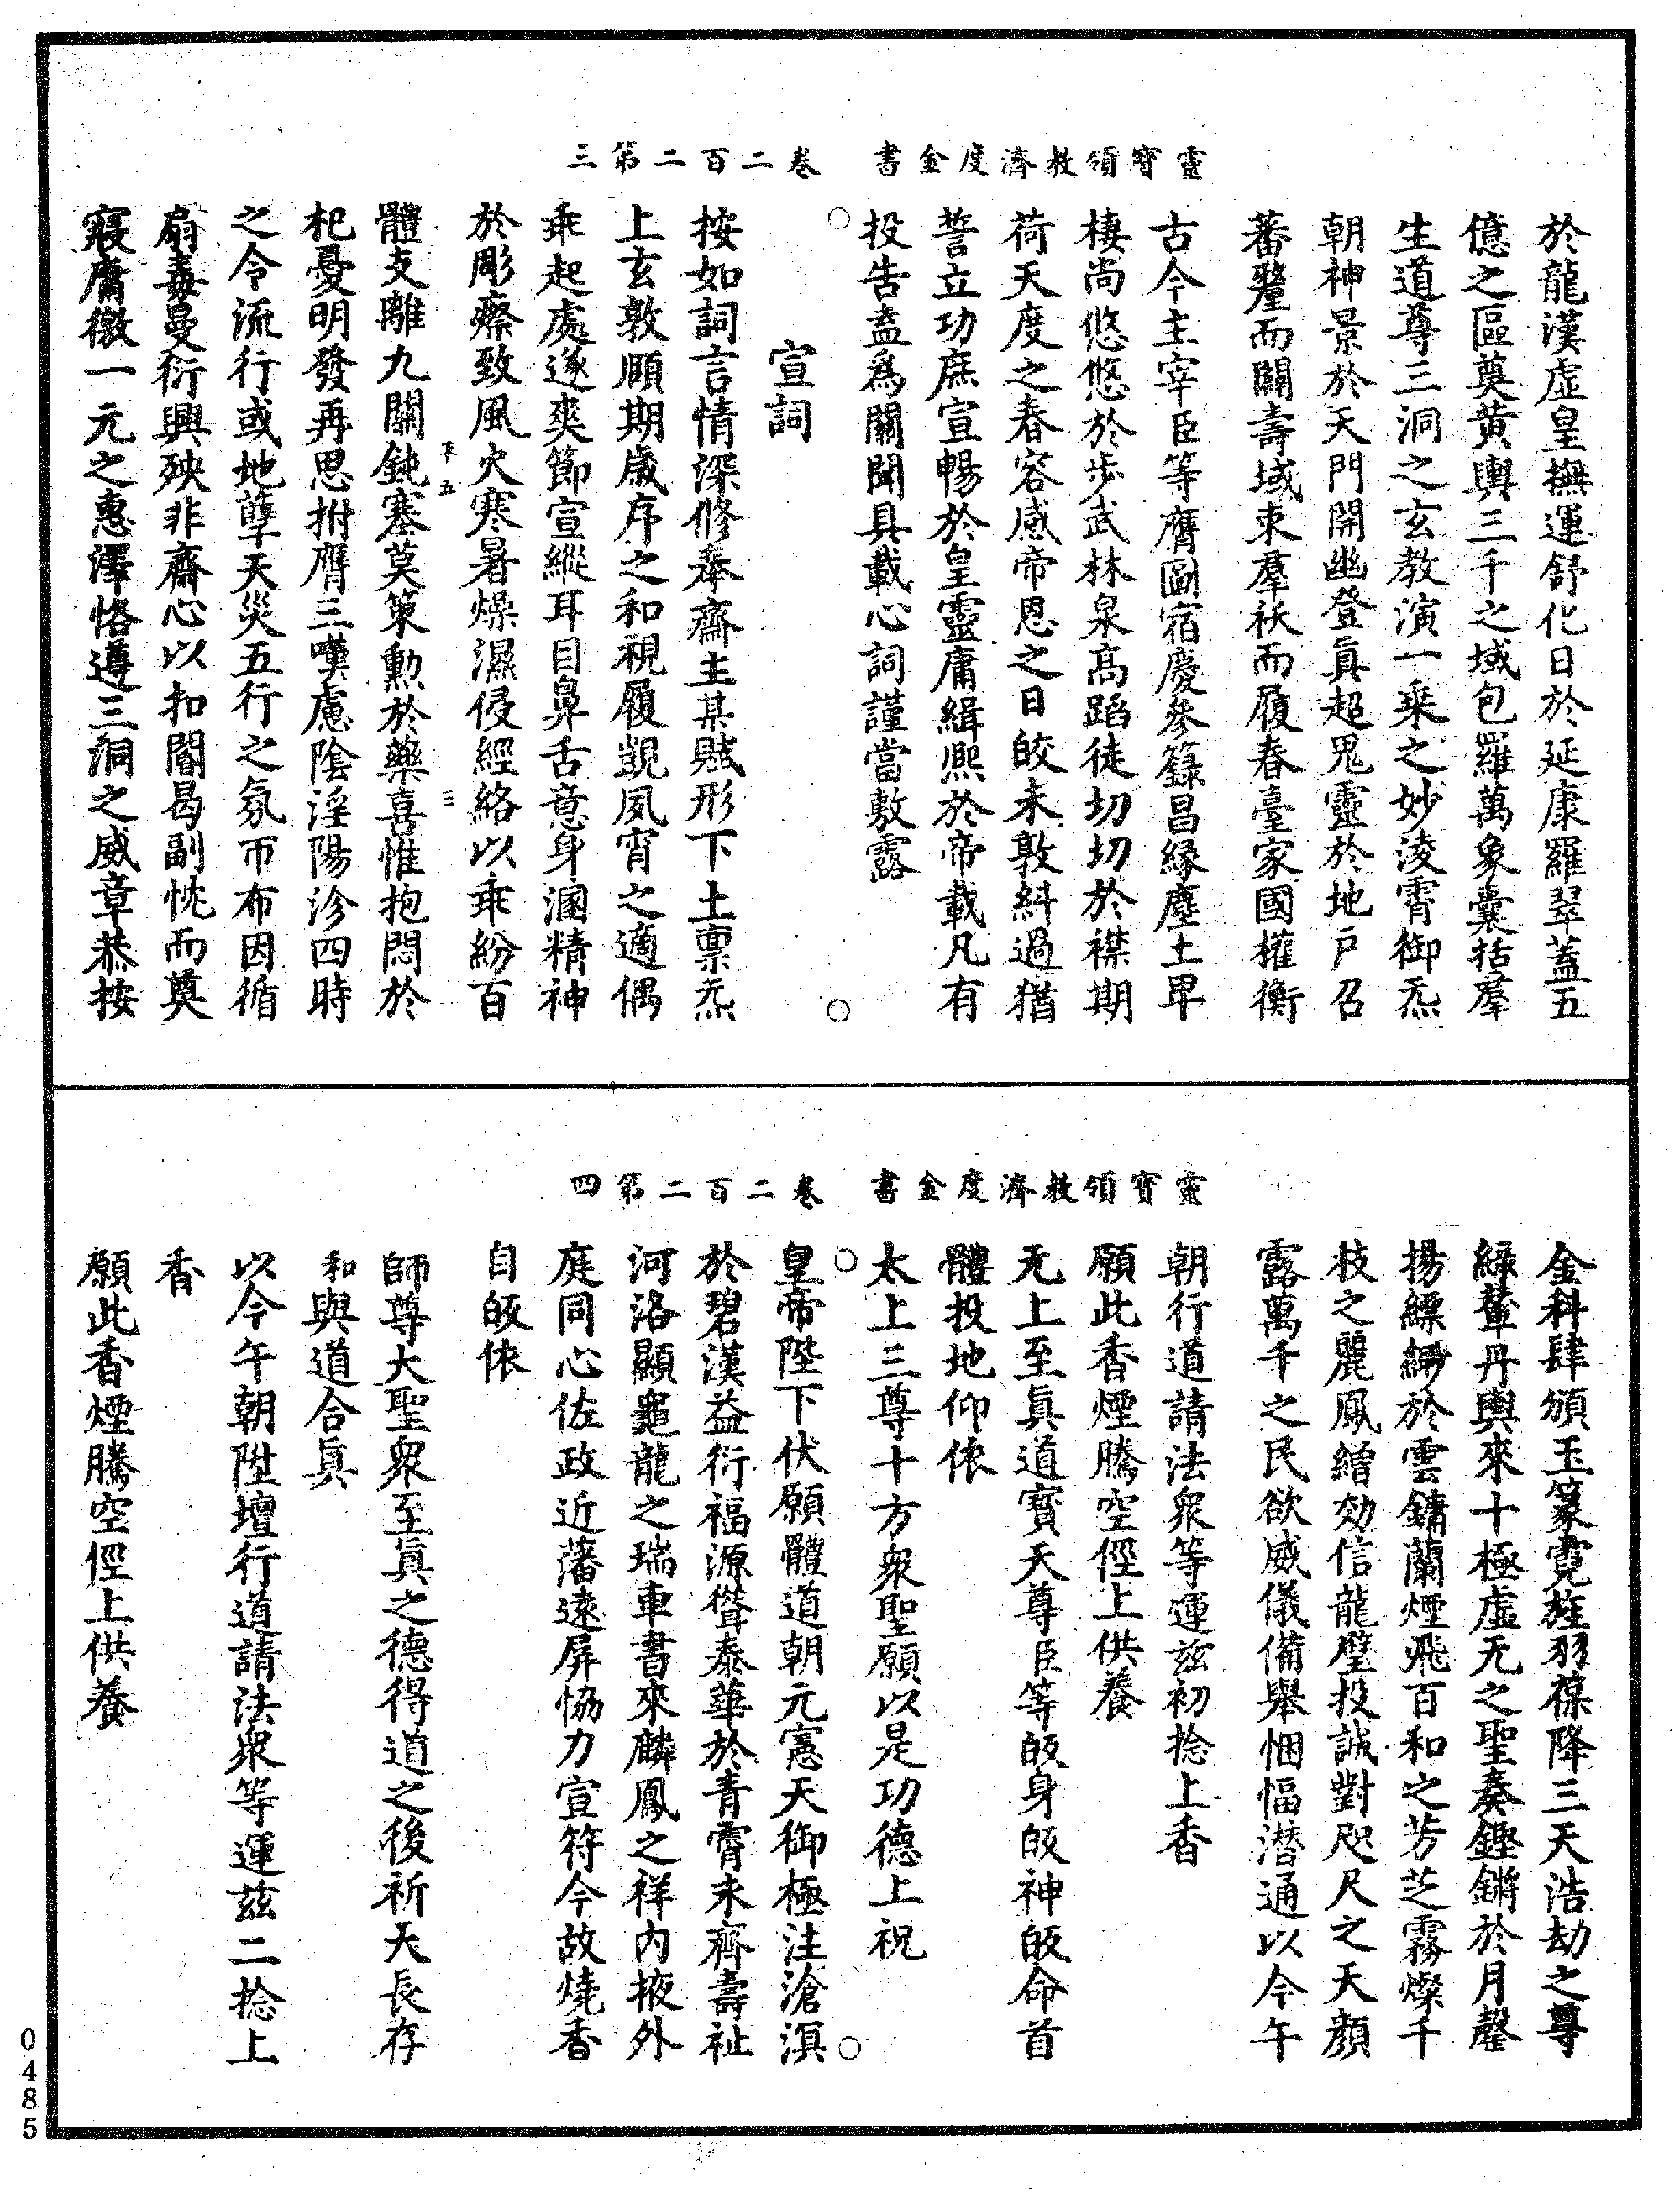 靈寶領教濟度金書　卷二百二第三
於龍漢虛皇撫運舒化日於延康羅翠蓋五
億之區奠黃輿三千之域包羅萬象囊括羣
生道尊三洞之玄教演一乘之妙淩霄御炁
朝神景於天門開幽登眞超鬼靈於地戶召
蕃釐而闢壽域朿羣祅而履春臺家國權衡
古今主宰臣等膺圖宿慶參籙昌緣塵土卑
棲尚悠悠於步武林泉高蹈徒切切於襟期
荷天度之春容感帝恩之日皎未敦紏過猶
誓立功庶宣暢於皇靈庸緝熈於帝載凡有
投告盍爲關聞具載心詞謹當敷露
宣詞
按如詞言情深修奉齋主某賦形下土稟炁
上玄敦願期歲序之和視履覬夙宵之適偶
乖起處遂爽節宣縱耳目鼻舌意身溷精神
於彫瘵致風火寒暑燥濕侵經絡以乖紛百
體支離九關鈍塞莫策勳於藥喜惟抱悶於
杞憂明發再思拊膺三嘆慮陰淫陽沴四時
之令流行或地孽天災五行之氛帀布因循
扇毒曼衍興殃非齋心以扣閽曷副忱而奠
寢庸徼一元之惠澤恪遵三洞之威章恭按
靈寶領教濟度金書　卷二百二第四
金科肆頒玉篆霓旌羽葆降三天浩劫之尊
綠輦丹輿來十極虛无之聖奏鏗鏘於月磬
揚縹緲於雲鏞蘭煙飛百和之芳芝霧燦千
枝之麗鳳繒効信龍璧投誠對咫尺之天顏
露萬千之民欲威儀備舉悃愊潛通以今午
朝行道請法衆等運兹初捻上香
願此香煙騰空徑上供養
无上至眞道寶天尊臣等皈身皈神皈命首
體投地仰依
太上三尊十方衆聖願以是功德上祝
皇帝陛下伏願體道朝元憲天御極注滄溟
於碧漢益衍福源聳泰華於青霄未齊壽祉
河洛顯龜龍之瑞車書來麟鳳之祥內掖外
庭同心佐政近藩遠屏恊力宣符今故燒香
自皈依
師尊大聖衆至眞之德得道之後祈天長存
和與道合眞
以今午朝陞壇行道請法衆等運兹二捻上
香
願此香煙騰空徑上供養
0485